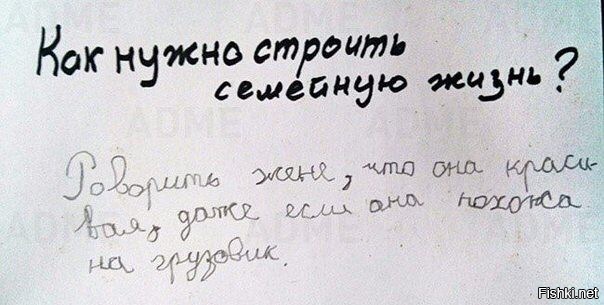 Как нужно строить
семейную жизнь?
Говорить жене, что она краси-
вая, даже если она похожа
на грузовик.
ADME
Fishki.net